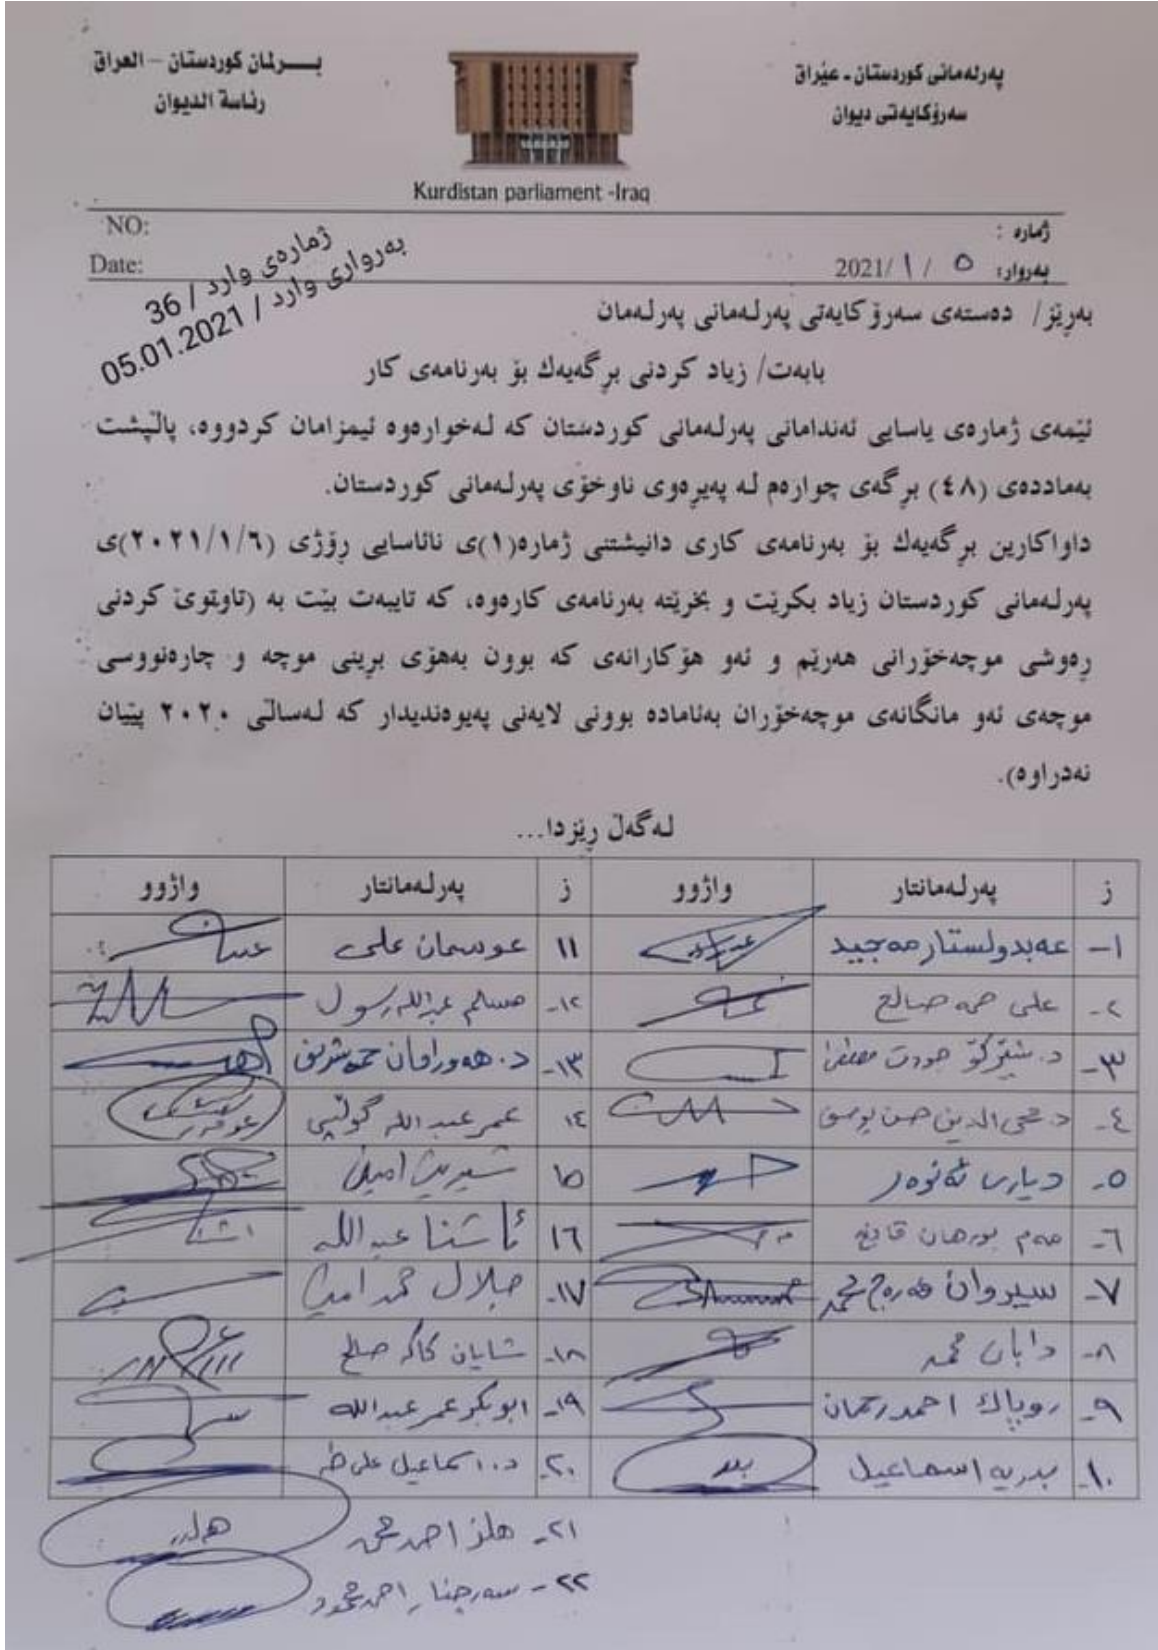 پەرلەمانی کوردستان - عێراق
سەرۆکایەتی دیوان
بــرلمان كوردستان – العراق
رئاسة الديوان
Kurdistan parliament -Iraq
NO:
ژمارە :
Date:
بەروار: ٥ / ١ /2021
ژمارەی وارد / 36
بەرواری وارد / 05.01.2021
بەڕێز/ دەستەی سەرۆکایەتی پەرلەمانی پەرلەمان
بابەت/ زیاد کردنی بڕگەیەك بۆ بەرنامەی کار
ئێمەی ژمارەی یاسایی ئەندامانی پەرلەمانی کوردستان کە لەخوارەوە ئیمزامان کردووە، پاڵپشت
بەماددەی (٤٨) بڕگەی چوارەم لە پەیڕەوی ناوخۆی پەرلەمانی کوردستان.
داواکارین بڕگەیەك بۆ بەرنامەی کاری دانیشتنی ژمارە(١)ی نائاسایی ڕۆژی (٢٠٢١/١/٦)ی
پەرلەمانی کوردستان زیاد بکرێت و بخرێتە بەرنامەی کارەوە، کە تایبەت بێت بە (تاوتوێ کردنی
ڕەوشی موچەخۆرانی هەرێم و ئەو هۆکارانەی کە بوون بەهۆی بڕینی موچە و چارەنووسی
موچەی ئەو مانگانەی موچەخۆران بەئامادە بوونی لایەنی پەیوەندیدار کە لەساڵی ٢٠٢٠ پێیان
نەدراوە).
لەگەڵ ڕێزدا...
ز پەرلەمانتار واژوو ز پەرلەمانتار واژوو
١- عەبدولستار مەجید ١١ عوسمان علی
٢- علی حمە صالح ١٢- مسلم عبداللە رسول
٣- د. شێرکۆ جودت مصطفى ١٣- د. هەورامان حمە شریف
٤- د. محی الدین حسن یوسف ١٤ عمر عبداللە گوڵپی
٥- دیاری ئەنوەر ١٥ شیرین امین
٦- مەم بورهان قانع ١٦ ئاشنا عبداللە
٧- سیروان فەرەج محمد ١٧- جلال محمد امین
٨- دابان محمد ١٨- شایان کاکە صالح
٩- روپاك احمد رحمان ١٩- ابوبکر عمر عبداللە
١٠- بدریە اسماعیل ٢٠- د. اسماعیل علی طە
٢١- هلز احمد
٢٢- سەرچنار احمد محمود